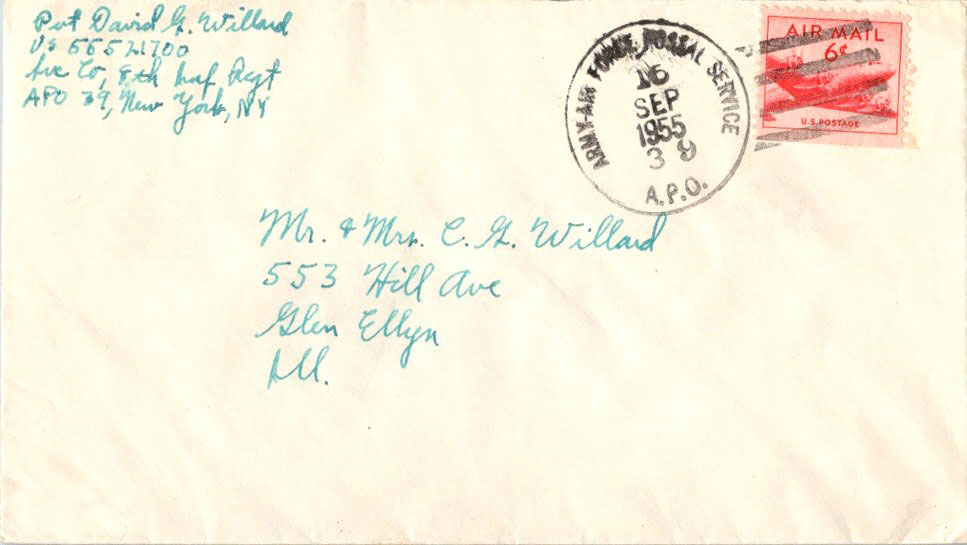 Pvt David G. Willard
US 55521700
Sve Co, 8th Inf. Regt
APO 39, New York, NY
ARMY-AIR FORCE POSTAL SERVICE
16
SEP
1955
3 9
A.P.O.
AIR MAIL
6¢
U.S. POSTAGE
Mr. & Mrs. C. G. Willard
553 Hill Ave
Glen Ellyn
Ill.